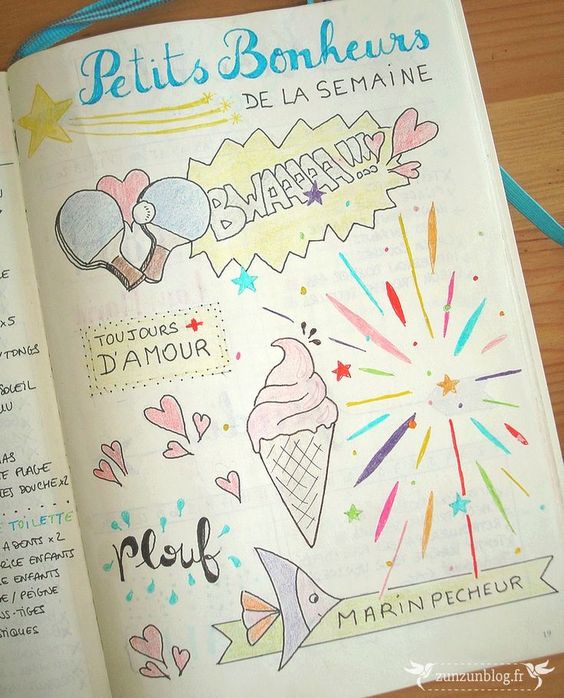 Petits Bonheurs
DE LA SEMAINE
BWAAAAA!!!...
TOUJOURS +
D'AMOUR
Plouf
MARIN PECHEUR
19
x5
TONGS
SOLEIL
PLAGE
BOUCHE x2
TOILETTE
A DENTS x2
ENFANTS
ENFANTS
/ PEIGNE
-TIGES
zunzunblog.fr